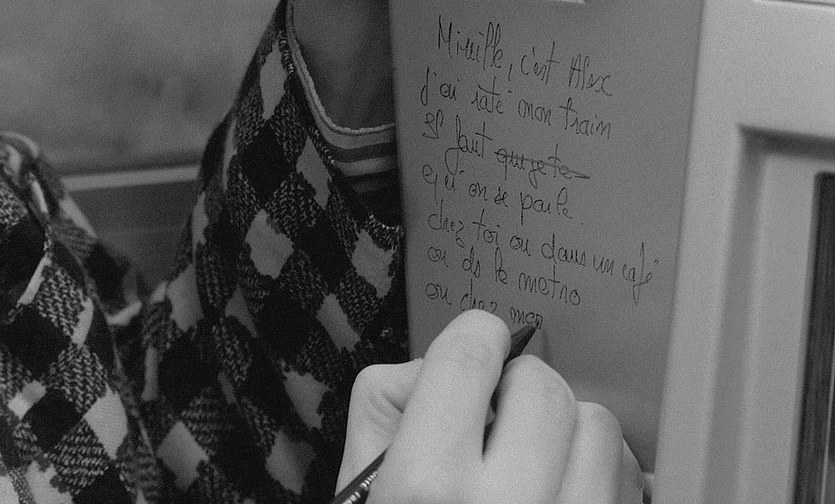 Mireille, c'est Alex
J'ai raté mon train
Il faut que je te
qu'on se parle.
chez toi ou dans un café
ou ds le metro
ou chez mon